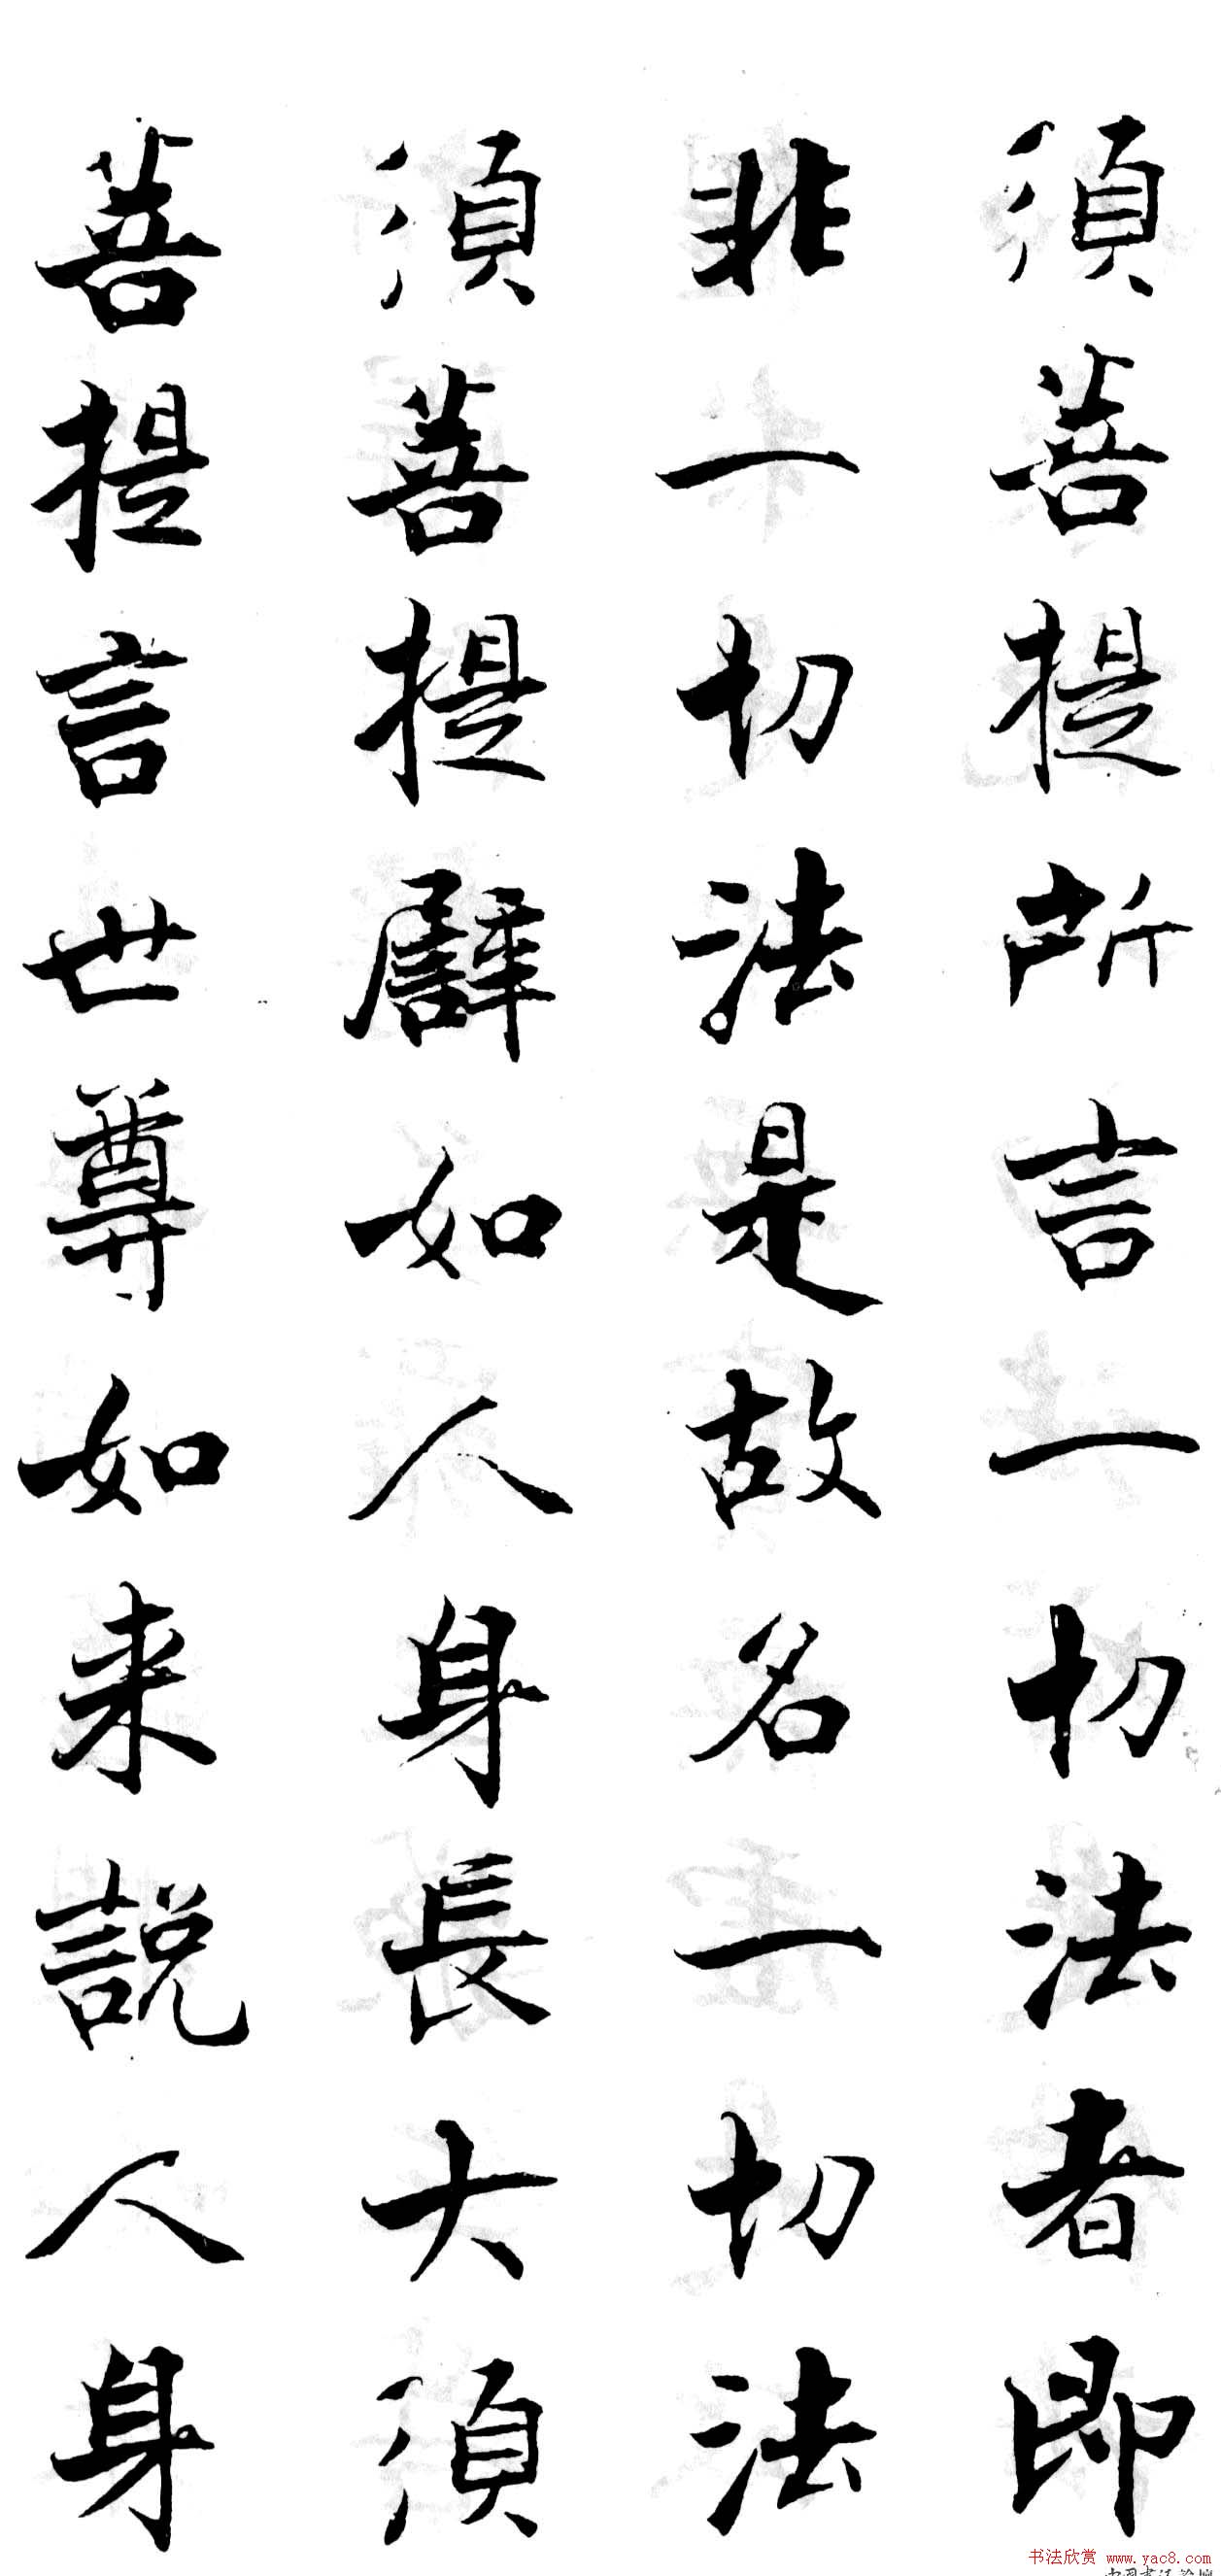 須菩提所言一切法者即
非一切法是故名一切法
須菩提譬如人身長大須
菩提言世尊如来說人身
书法欣赏 www.yac8.com